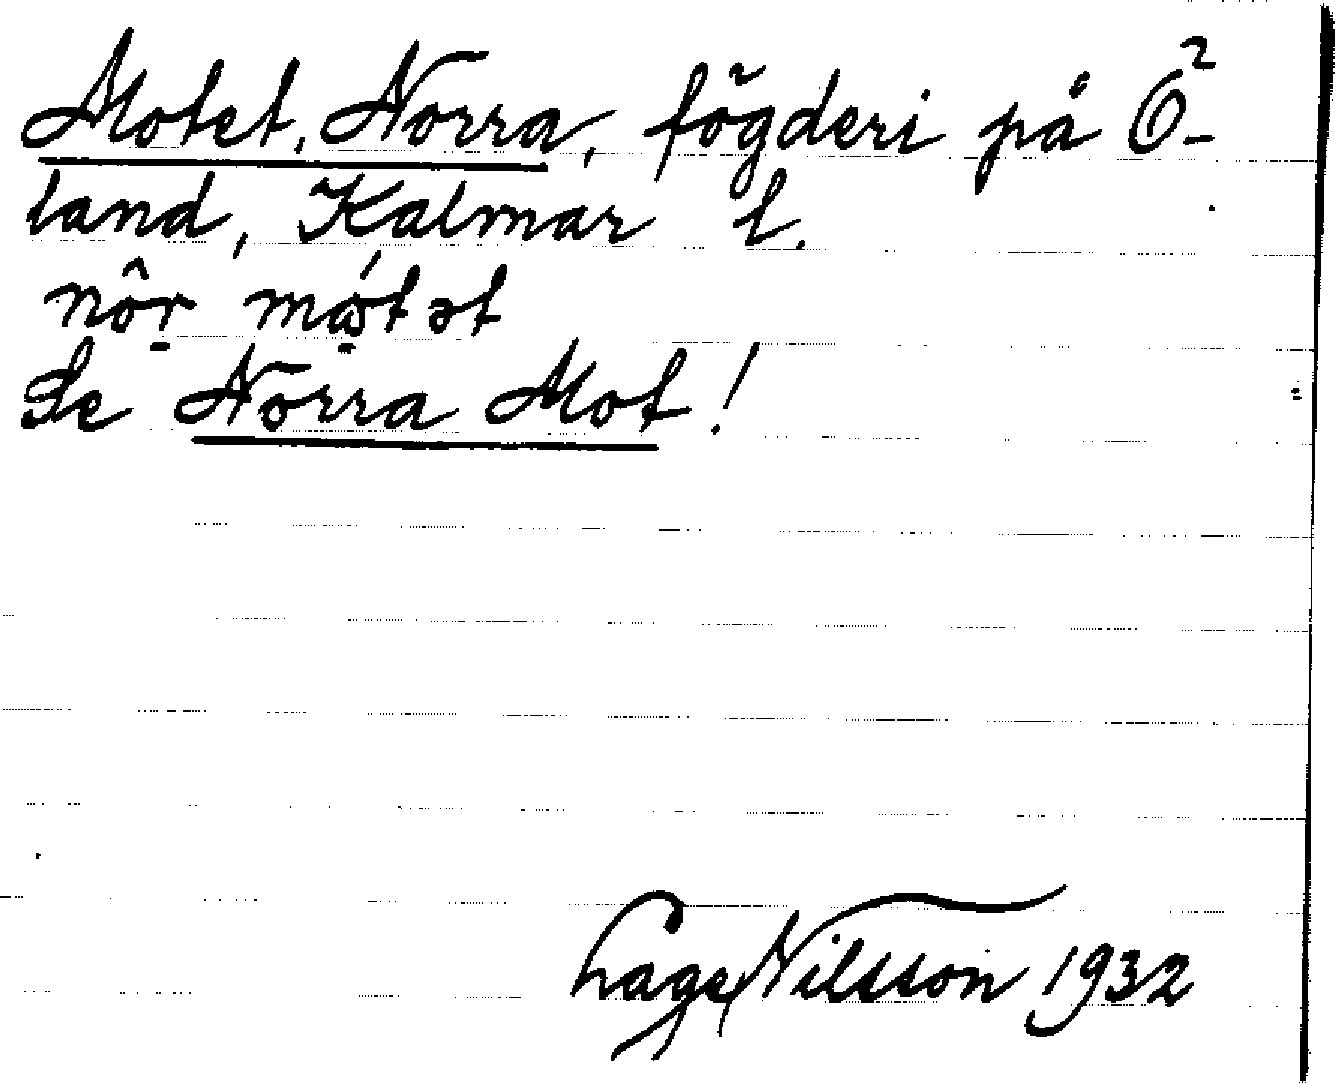 Motet, Norra, fögderi på Ö-
land, Kalmar l.
nôr mót ət
Se Norra Mot!
Lage Nilsson 1932